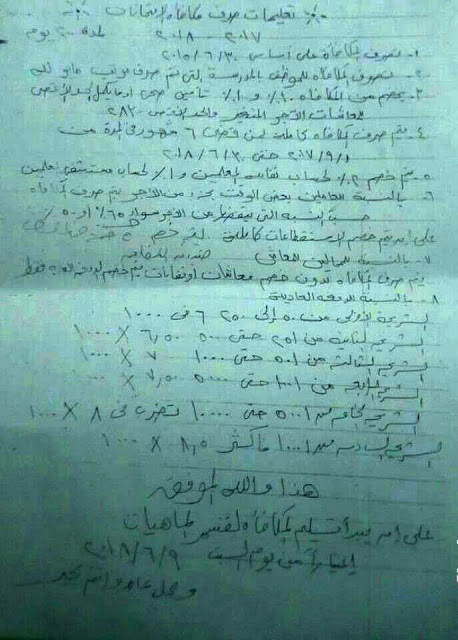 تعليمات صرف مكافأة الامتحانات
٢٠١٧ - ٢٠١٨ لمدة ٢٠٠ يوم
١- تصرف المكافأة على أساس ٢٠١٥/٦/٣٠
٢- تصرف المكافأة للموظف بالمدرسة التى تم صرف مرتب مايو
٣- يخصم من المكافأة ١٠٪ و ١٪ تأمين صحى
معاشات الأجر المتغير والحد الأقصى
٤- يتم صرف المكافأة كاملة لمن قضى ٦ شهور فى المدة من
٢٠١٧/٩/١ حتى ٢٠١٨/٦/٣٠
٥- يتم خصم ٢٪ لحساب نقابة المعلمين و ١٪ لحساب مستشفى المعلمين
٦- بالنسبة للعاملين بعض الوقت بجزء من الأجر يتم صرف المكافأة
حسب النسبة التى من الأجر سواء ٦٥٪ أو ٥٠٪
على أن يتم خصم الاستقطاعات كاملة
٧- بالنسبة
يتم صرف المكافأة بدون خصم معاشات أو نقابات يتم خصم فقط
٨- بالنسبة
الشريحة الأولى من ٥٠ إلى ٢٥٠ ٦ فى ١٠٠٠
الشريحة الثانية من ٢٥١ حتى ٥٠٠ ٦,٥ × ١٠٠٠
الشريحة الثالثة من ٥٠١ حتى ١٠٠٠ ٧ × ١٠٠٠
الشريحة الرابعة من ١٠٠١ حتى ٥٠٠٠ ٧,٥ × ١٠٠٠
الشريحة الخامسة من ٥٠٠١ حتى ١٠٠٠٠ تضرب فى ٨ × ١٠٠٠
الشريحة السادسة من ١٠٠٠١ فأكثر ٨,٥ × ١٠٠٠
هذا والله الموفق
على أن يبدأ تسليم المكافأة لقسم الماهيات
إعتباراً من يوم السبت ٢٠١٨/٦/٩
وكل عام وأنتم بخير